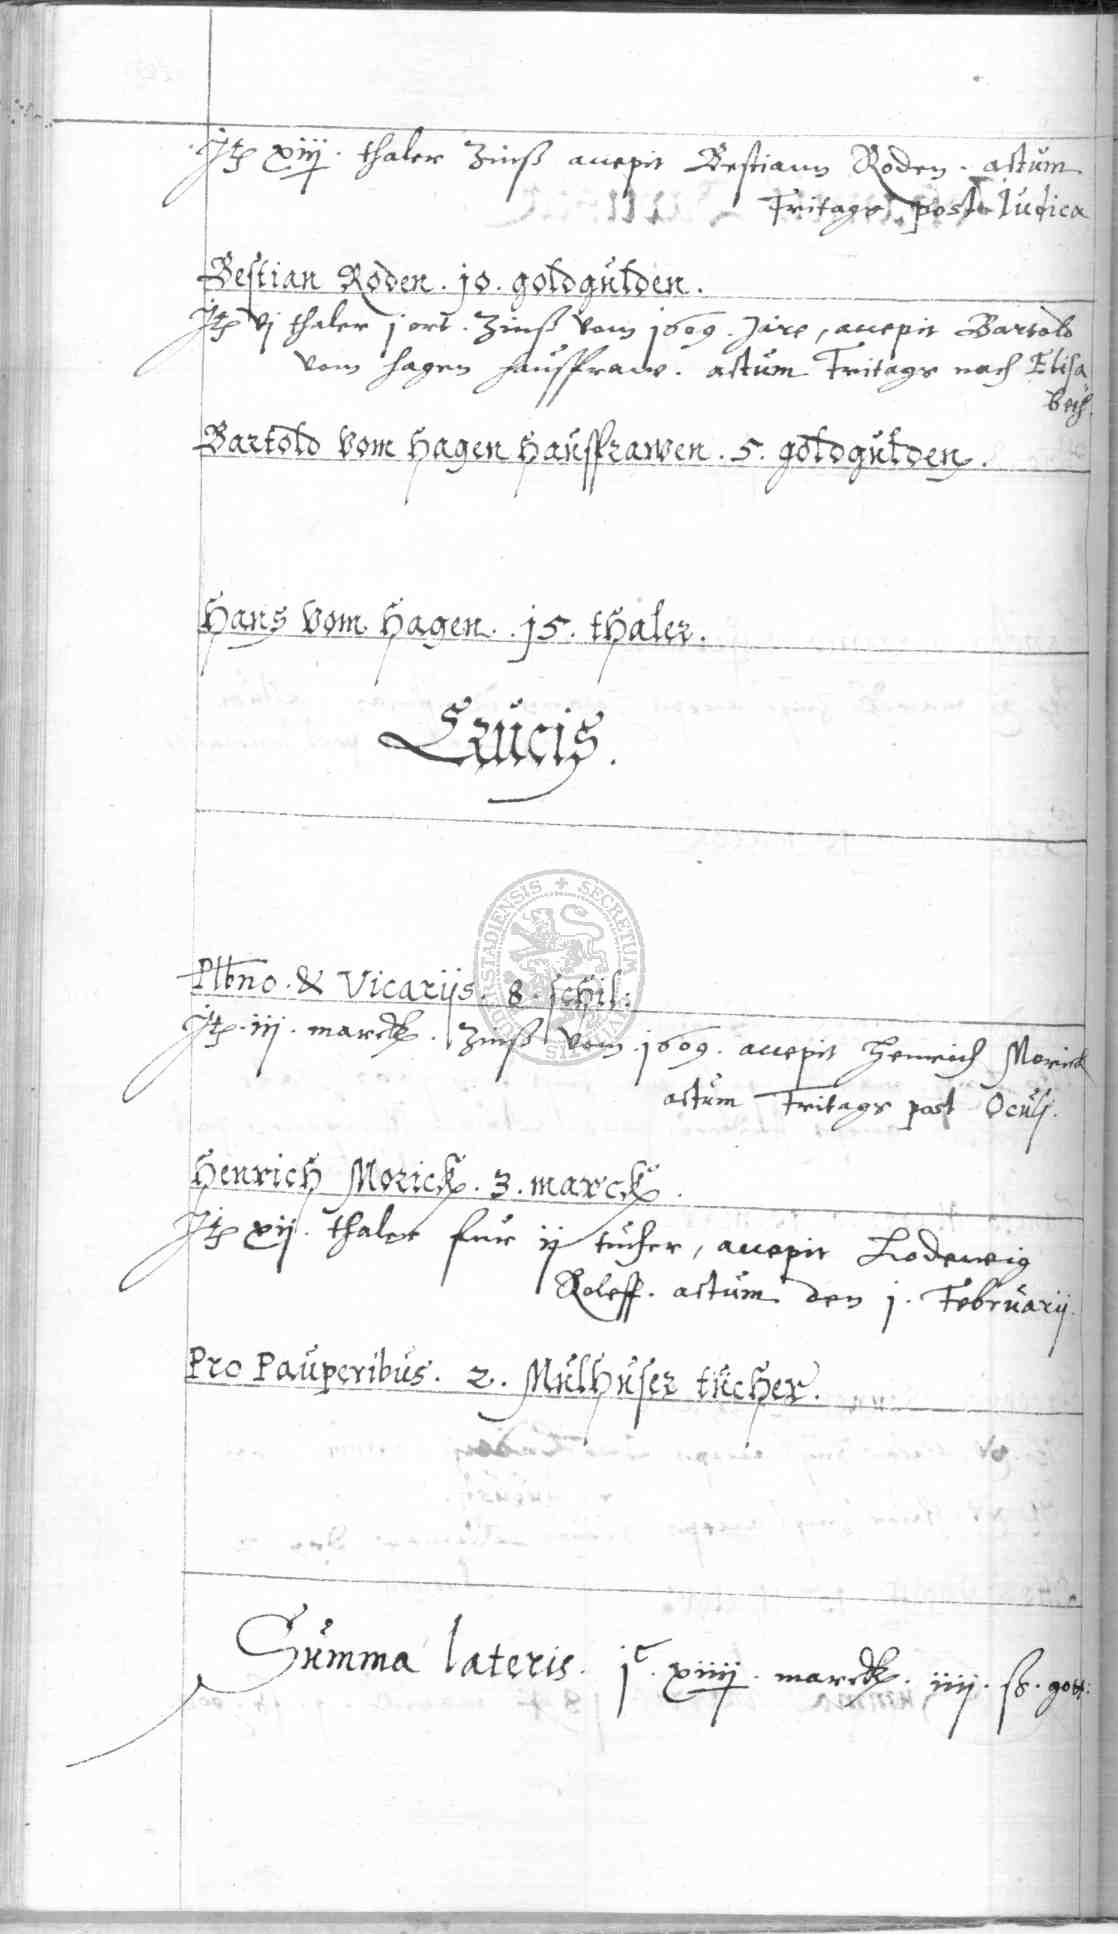 Jtē xiij. thaler Zinß accepit Bestiann Roden. actum
Fritags post Iudica
Bestian Roden. 10. goldgulden.
Jtē vj thaler j ort. Zinß vom 1609. Jare, accepit Bartold
vom Hagen haußfraw. actum Fritags nach Elisa
beth.
Bartold vom Hagen haußfrawen. 5. goldgulden.
Hans vom Hagen. 15. thaler.
Crucis.
Plbno. & Vicarijs. 8. schil:
Jtē. iij. marck. Zinß vom. 1609. accepit Henrich Morick
actum Fritags post Oculj.
Henrich Morick. 3. marck.
Jtē xij. thaler fur ij tucher, accepit Lodewig
Roleff. actum den 1. Februarij.
Pro Pauperibus. 2. Mulhuser tucher.
Summa lateris. jc. xiiij. marck. iiij. ß. gott: